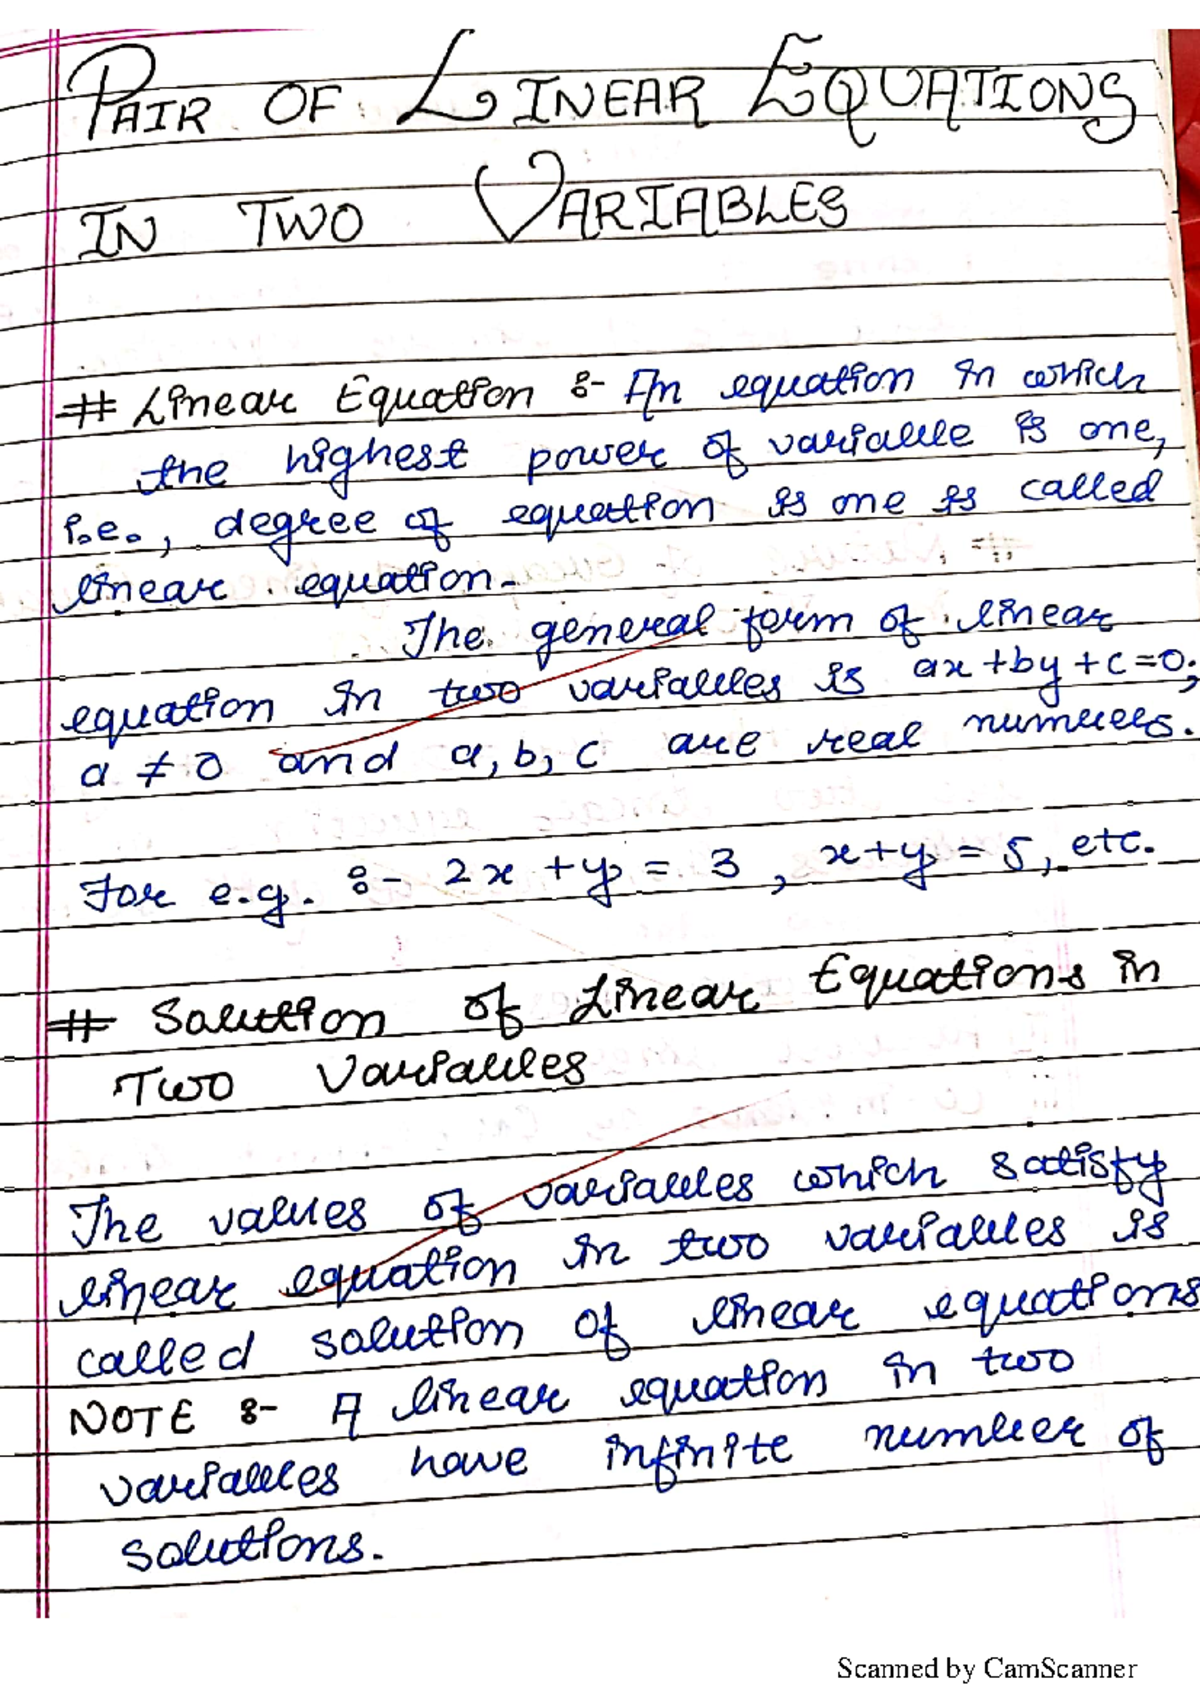 PAIR OF LINEAR EQUATIONS
IN TWO VARIABLES
# Linear Equation :- An equation in which
the highest power of variable is one,
i.e., degree of equation is one is called
linear equation.
The general form of linear
equation in two variables is ax+by+c=0;
a ≠ 0 and a, b, c are real numbers.
For e.g. :- 2x + y = 3 , x+y = 5, etc.
# Solution of Linear Equations in
Two Variables
The values of variables which satisfy
linear equation in two variables is
called solution of linear equations
NOTE :- A linear equation in two
variables have infinite number of
solutions.
Scanned by CamScanner